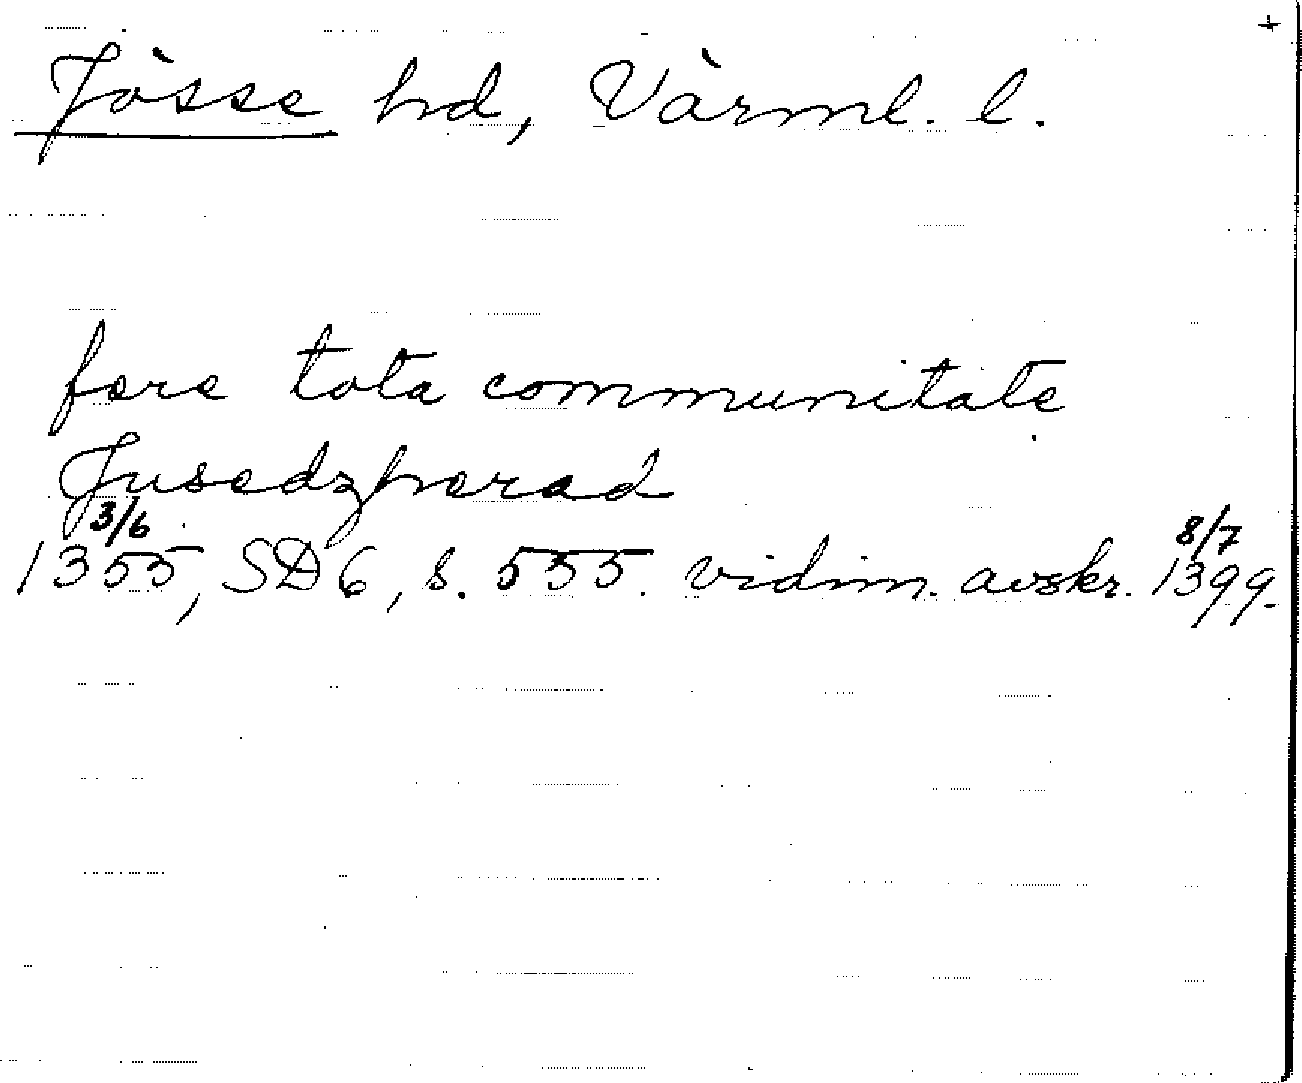 +
Jösse hd, Värml. l.
fere tota communitate
Jusedzherad
3/6 8/7
1355, SD 6, s. 555. vidim. avskr. 1399.